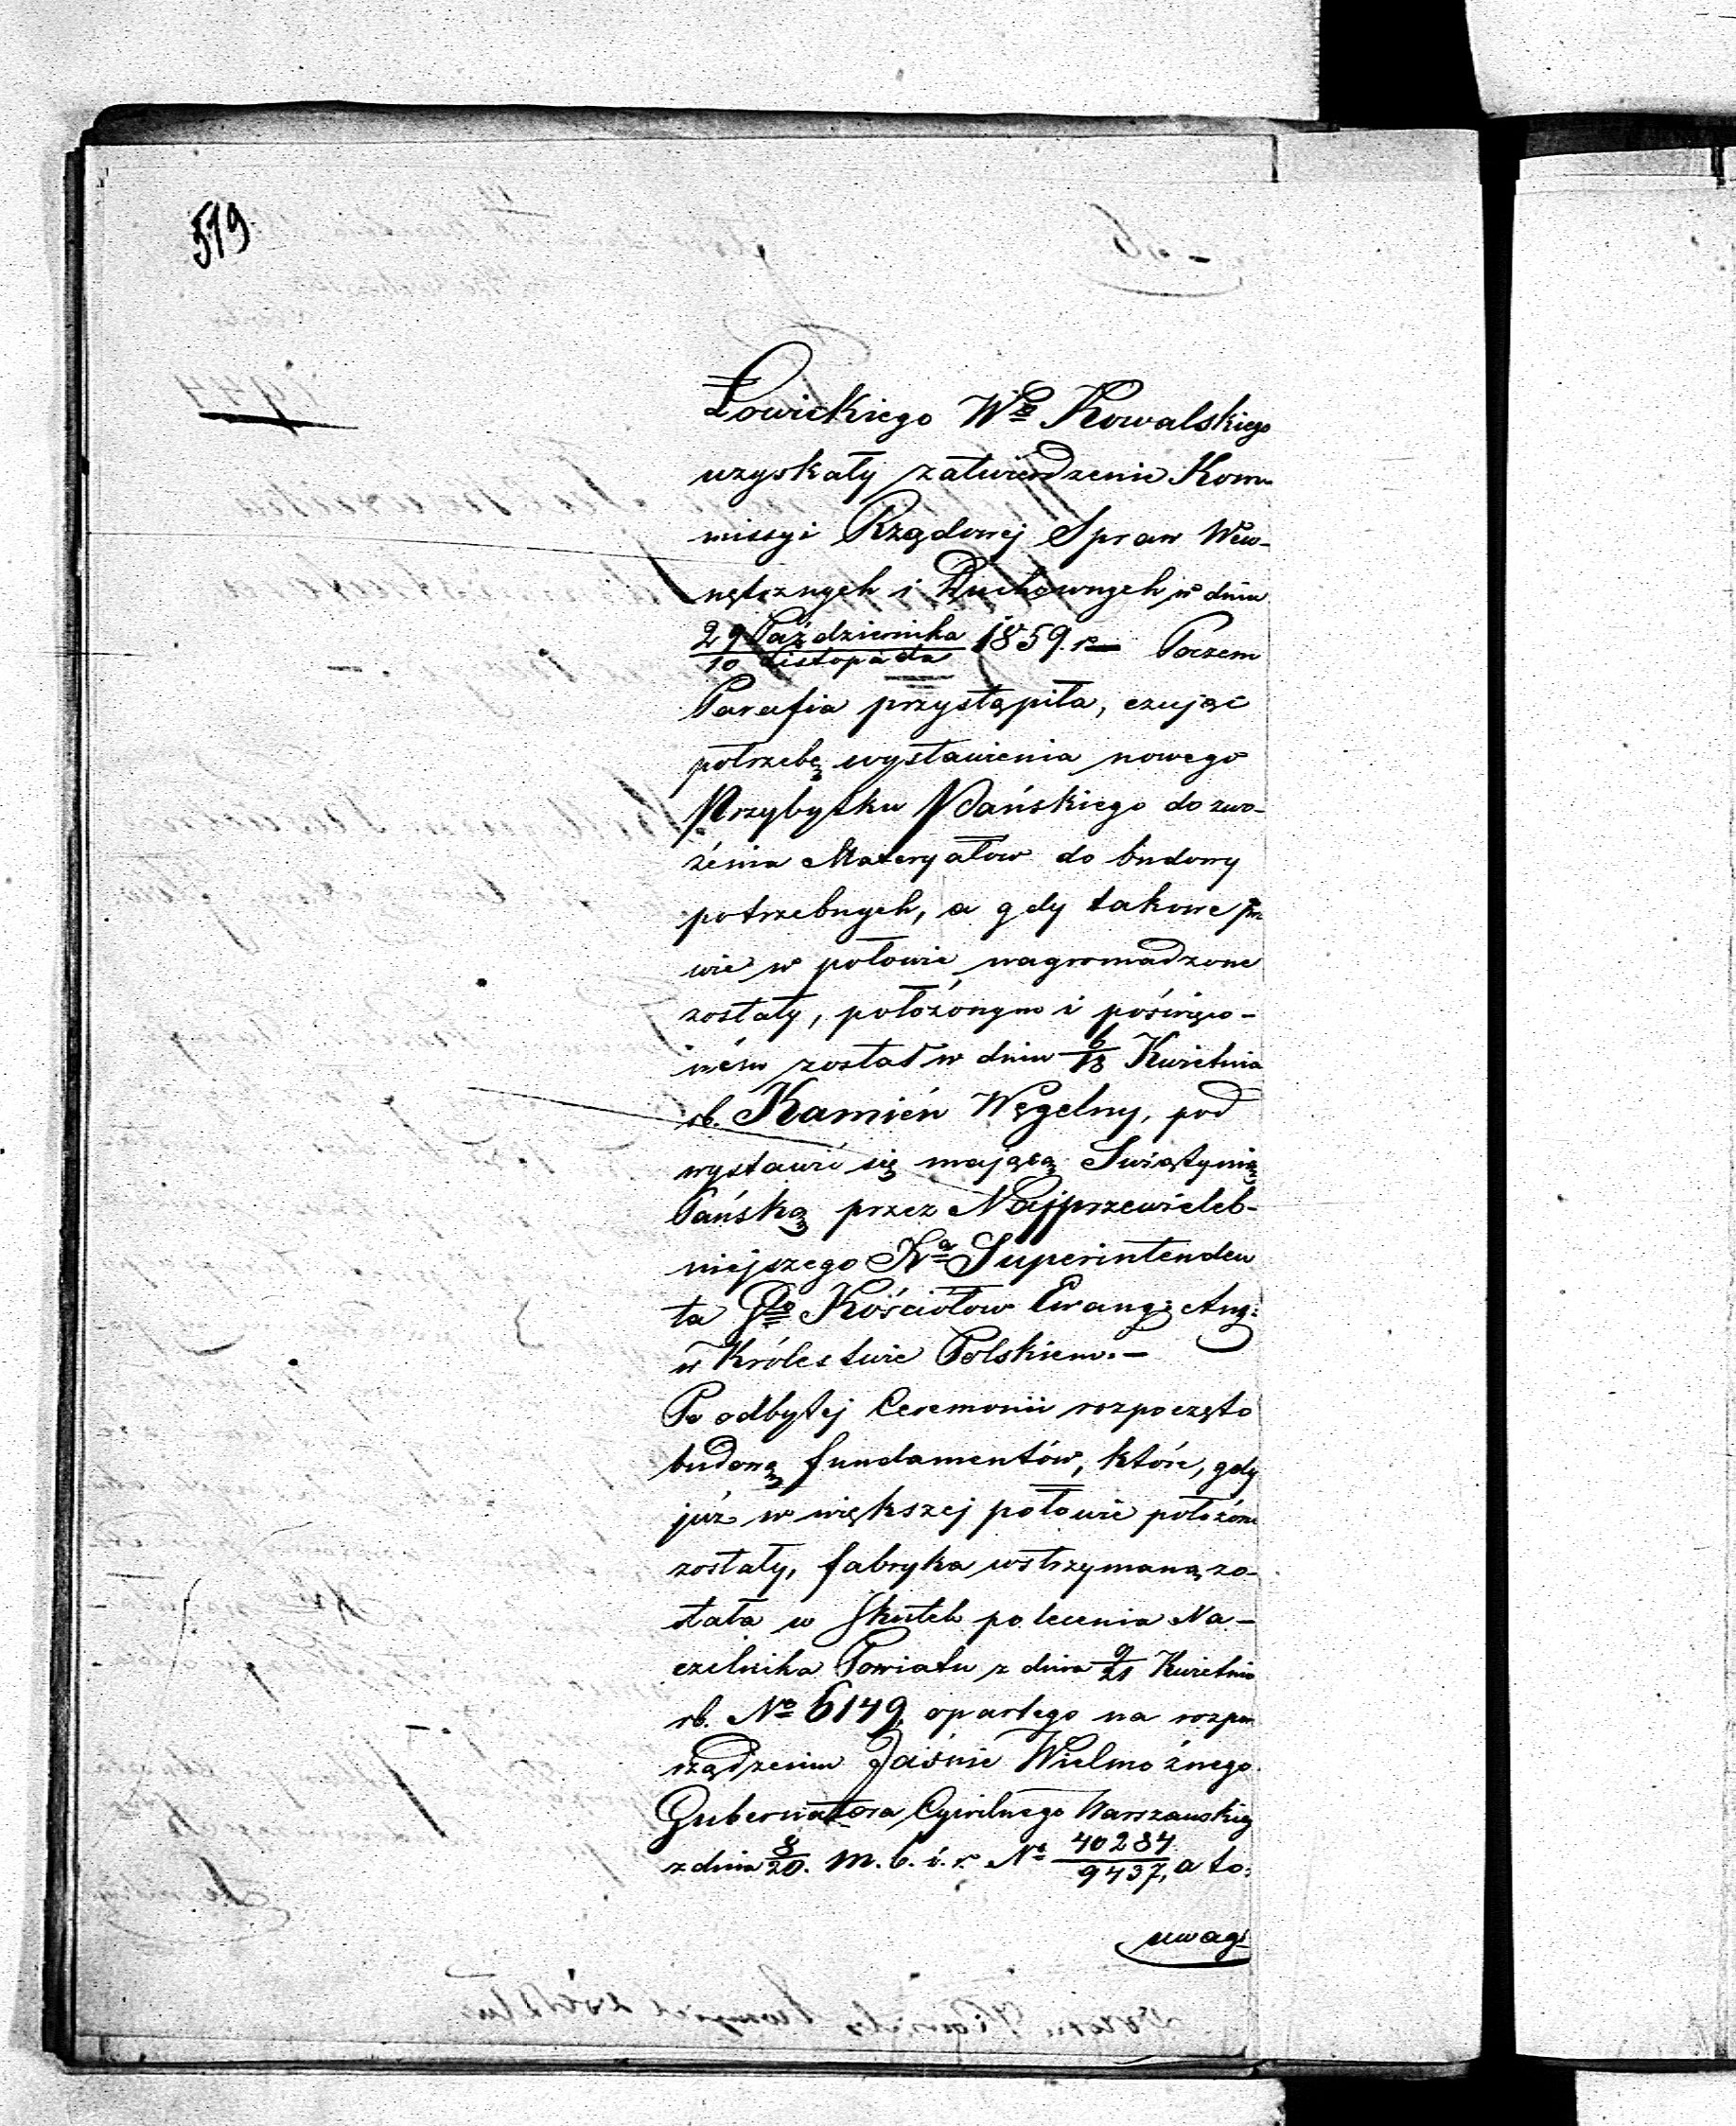 519
Łowickiego Wo Kowalskiego
uzyskały zatwierdzenie Kom-
missyi Rządowej Spraw Wew-
nętrznych i Duchownych w dniu
29 Października/10 Listopada 1859 r. — Poczem
Parafia przystąpiła, czując
potrzebę wystawienia nowego
Przybytku Pańskiego do zwo-
żenia Materyałow do budowy
potrzebnych, a gdy takowe pra
wie w połowie nagromadzone
zostały, położonym i poświęco-
ném został w dniu 6/18 Kwietnia
rb. Kamień Węgelny, pod
wystawić się mającą Swiątynię
Pańską przez Najprzewieleb-
niejszego Xa Superintenden
ta Glo Kościołow Ewang: Aug:
w Królestwie Polskiem. —
Po odbytej Ceremonii rozpoczęto
budowę fundamentów, które, gdy
już w większej połowie położone
zostały, fabryka wstrzymaną zo-
stała w skutek polecenia Na-
czelnika Powiatu z dnia 9/21 Kwietnia
rb. No 6149, opartego na rozpo
rządzeniu Jaśnie Wielmożnego
Gubernatora Cywilnego Warszawskieg
z dnia 8/20. m. b. i. r. No 40284/9437, a to:
uwag-